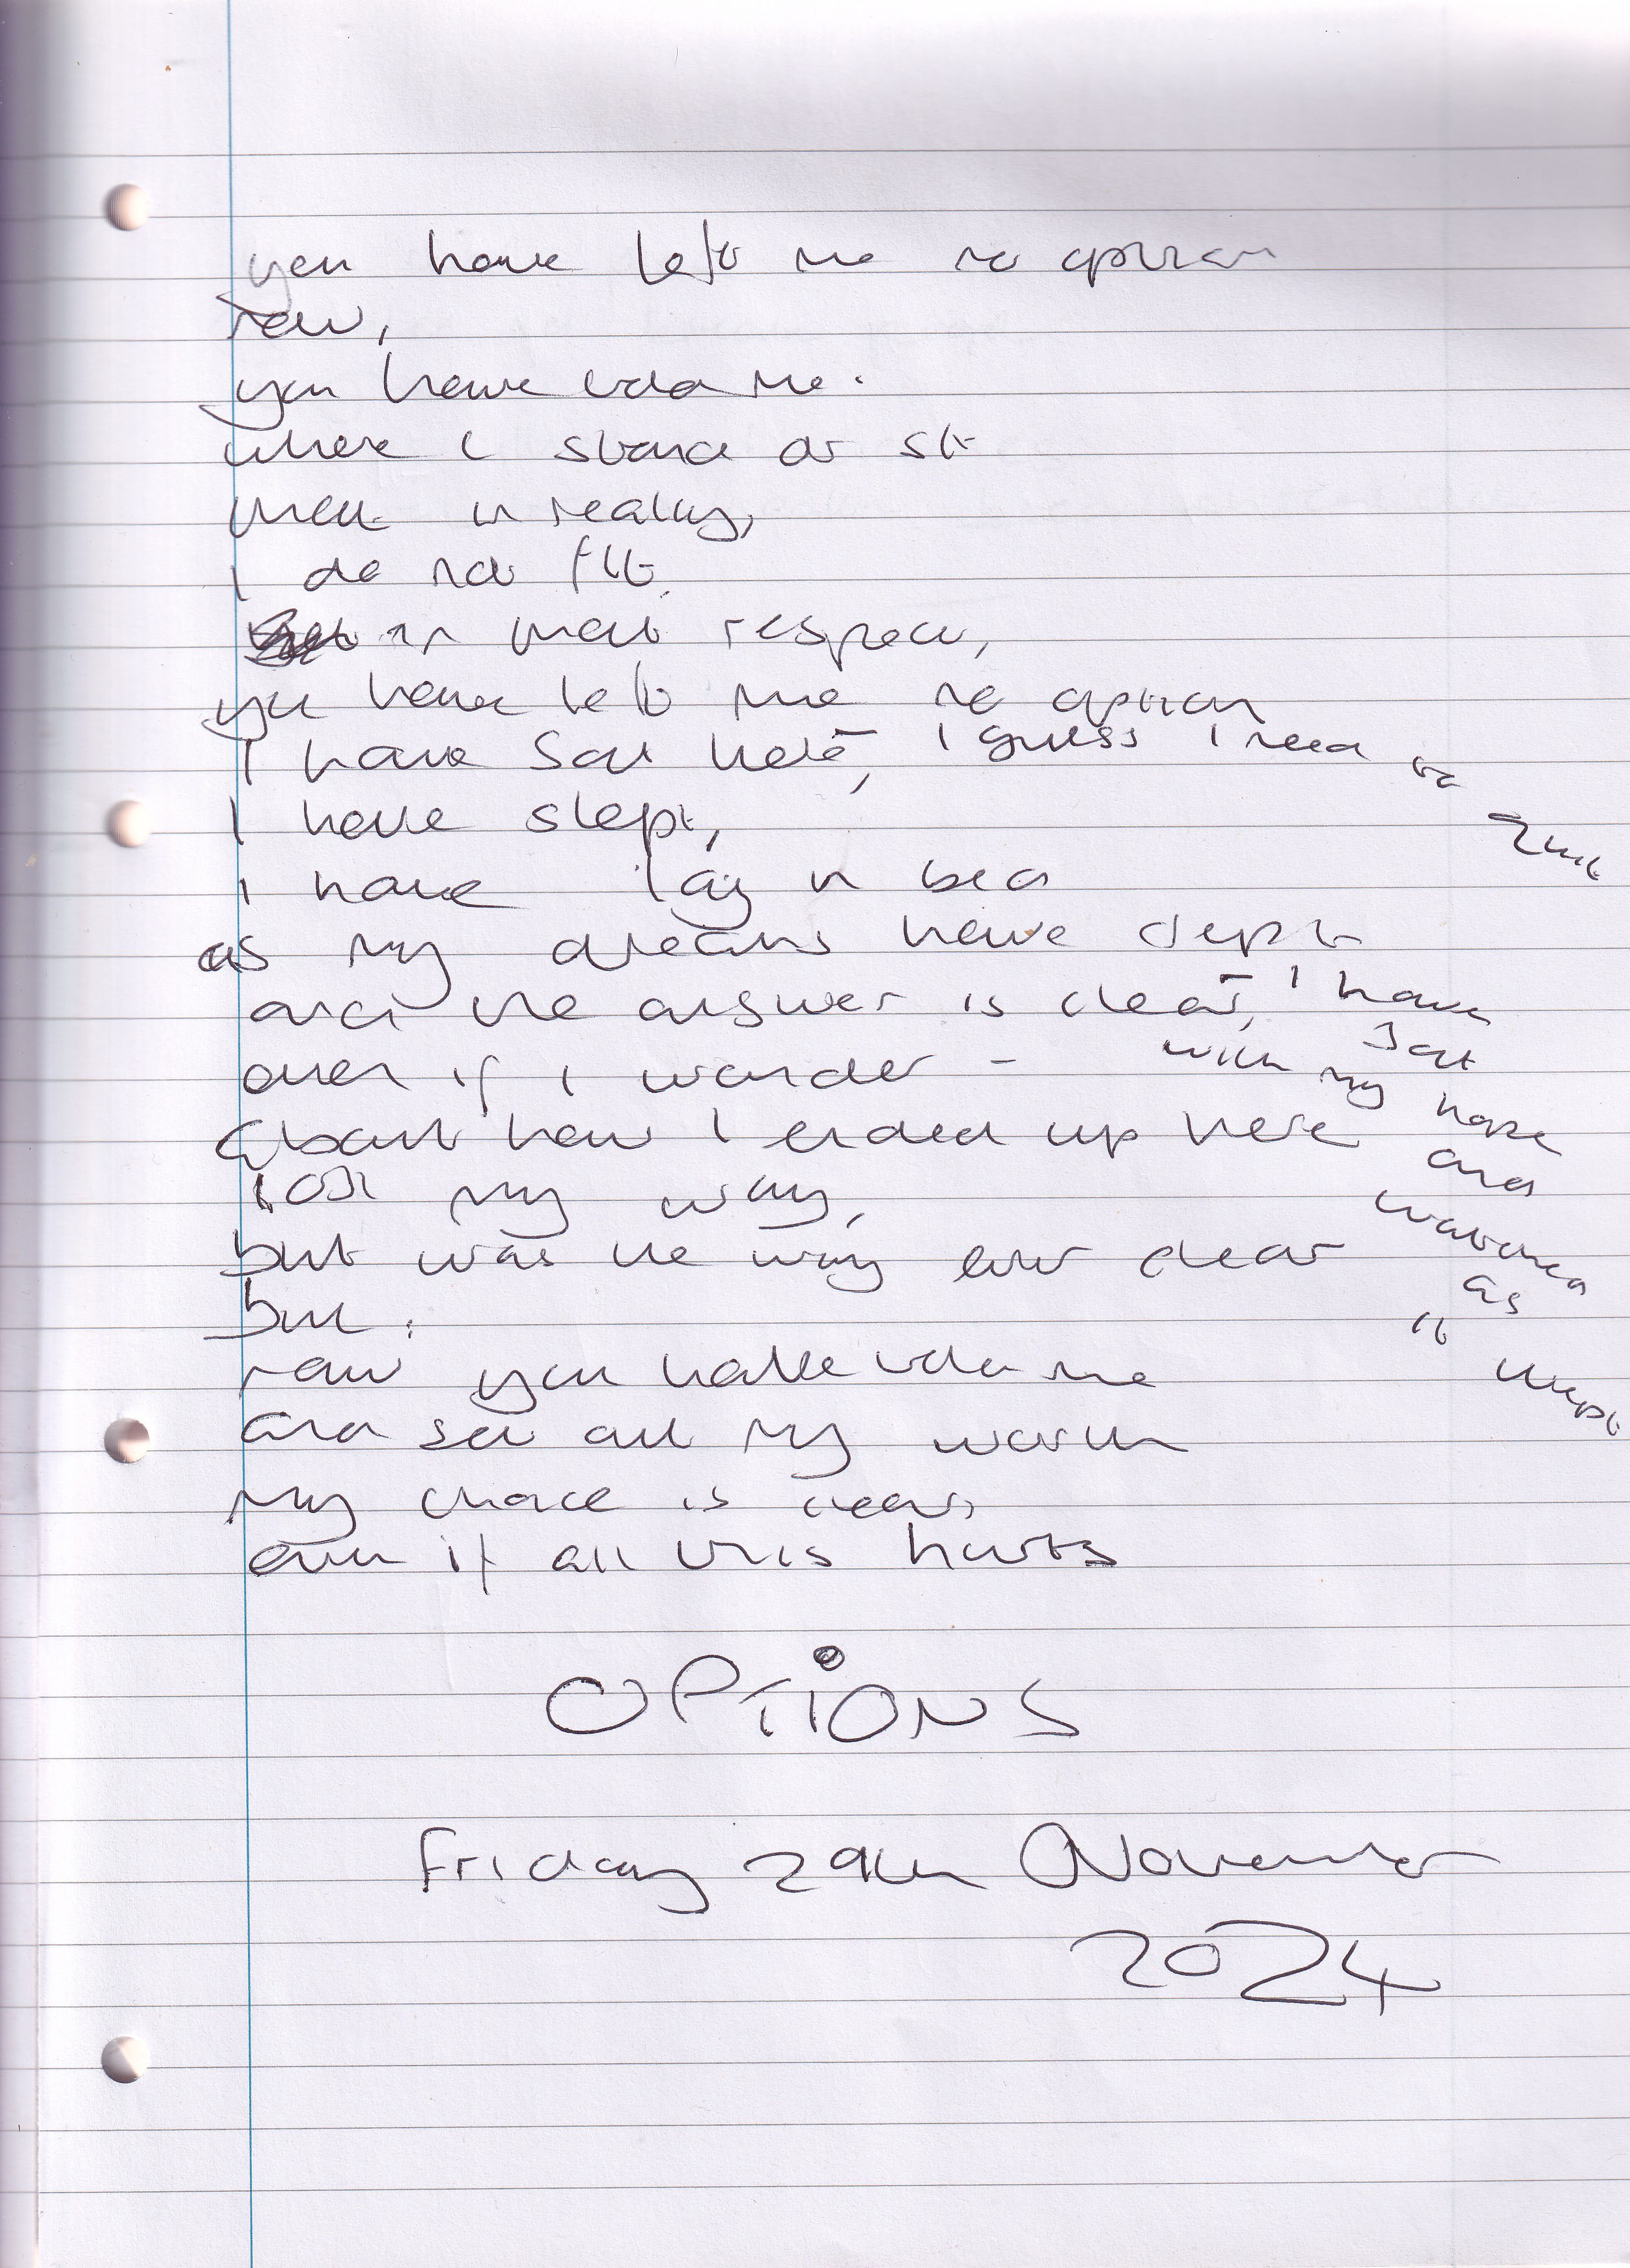 you have left me no option
now,
you have told me.
where I stand or sit
that in reality,
I do not fit.
in that respect,
you have left me no option
I have sat here, I guess I need to quit
I have slept,
I have lay in bed
as my dreams have depth
and the answer is clear, I have sat
even if I wonder - with my hope and watched as it wept
about how I ended up here
lost my way,
but was the way ever clear
but.
now you have told me
and set out my worth
my choice is clear,
even if all this hurts
OPTiONS
Friday 29th November
2024